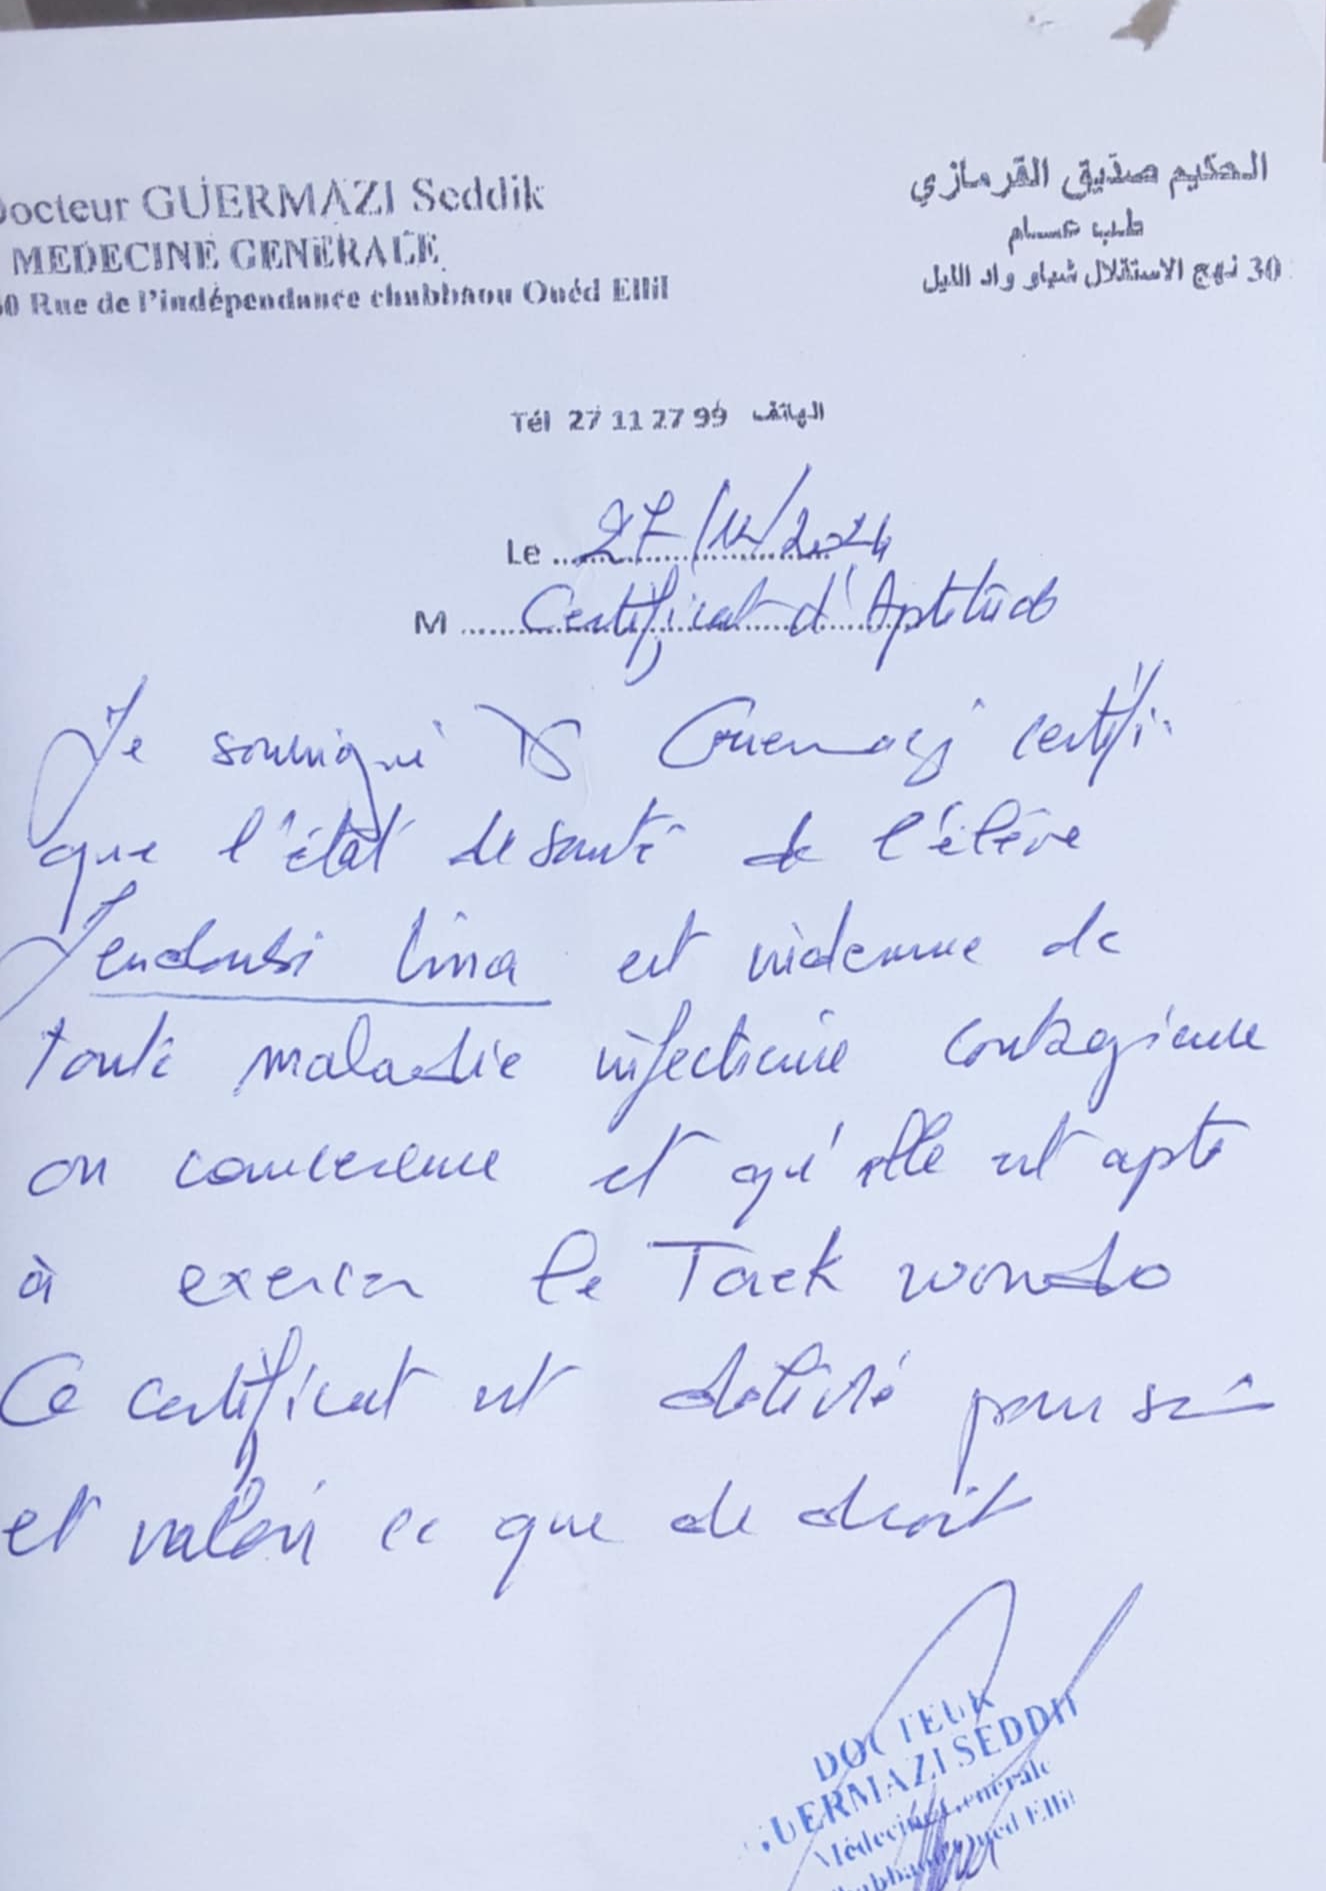 Docteur GUERMAZI Seddik
MEDECINE GENERALE
30 Rue de l'indépendance chabbaou Ouéd Ellil
الحكيم صديق القرمازي
طب عام
30 نهج الاستقلال شباو واد الليل
Tél 27 11 27 99 الهاتف
Le 27/12/2024
M Certificat d'Aptitude
Je soussigné Dr Guermazi certifie
que l'état de santé de l'élève
Jendoubi Lina est indemne de
toute maladie infectieuse contagieuse
ou et qu'elle est apte
à exercer le Taek wondo
Ce certificat est délivré pour servir
et valoir ce que de droit
DOCTEUR
GUERMAZI SEDDIK
Médecine Générale
Chabbaou Oued Ellil